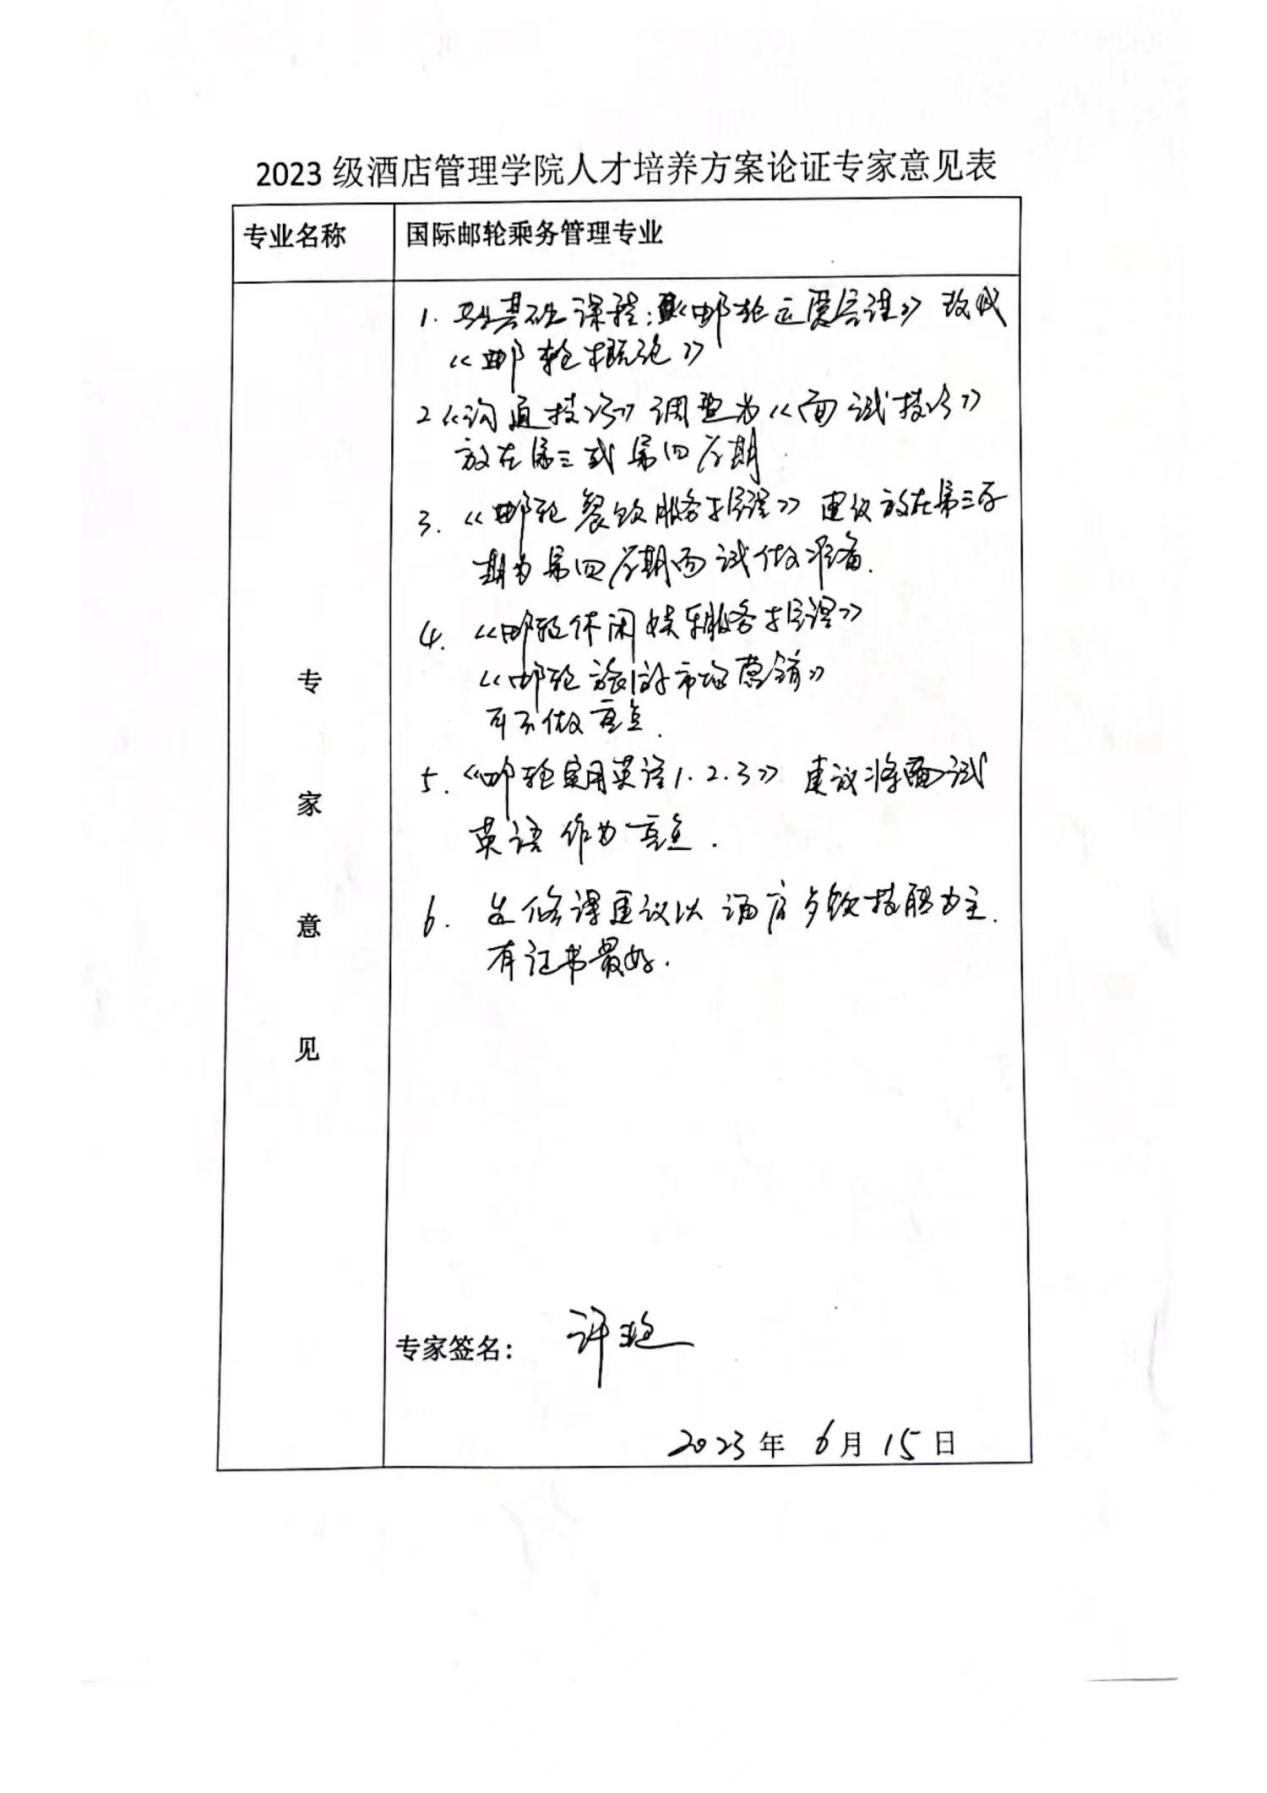 2023 级酒店管理学院人才培养方案论证专家意见表
专业名称
国际邮轮乘务管理专业
专家意见
1. 专业基础课程:《邮轮运营管理》改成
《邮轮概论》
2《沟通技巧》调整为《面试技巧》
放在第三或第四学期.
3. 《邮轮餐饮服务与管理》建议放在第三学
期为第四学期面试做准备.
4. 《邮轮休闲娱乐服务与管理》
《邮轮旅游市场营销》
可不做重点.
5. 《邮轮实用英语1.2.3》建议将面试
英语作为重点.
6. 选修课建议以酒店与饮技能为主.
有证书最好.
专家签名: 许
2023 年 6 月 15 日